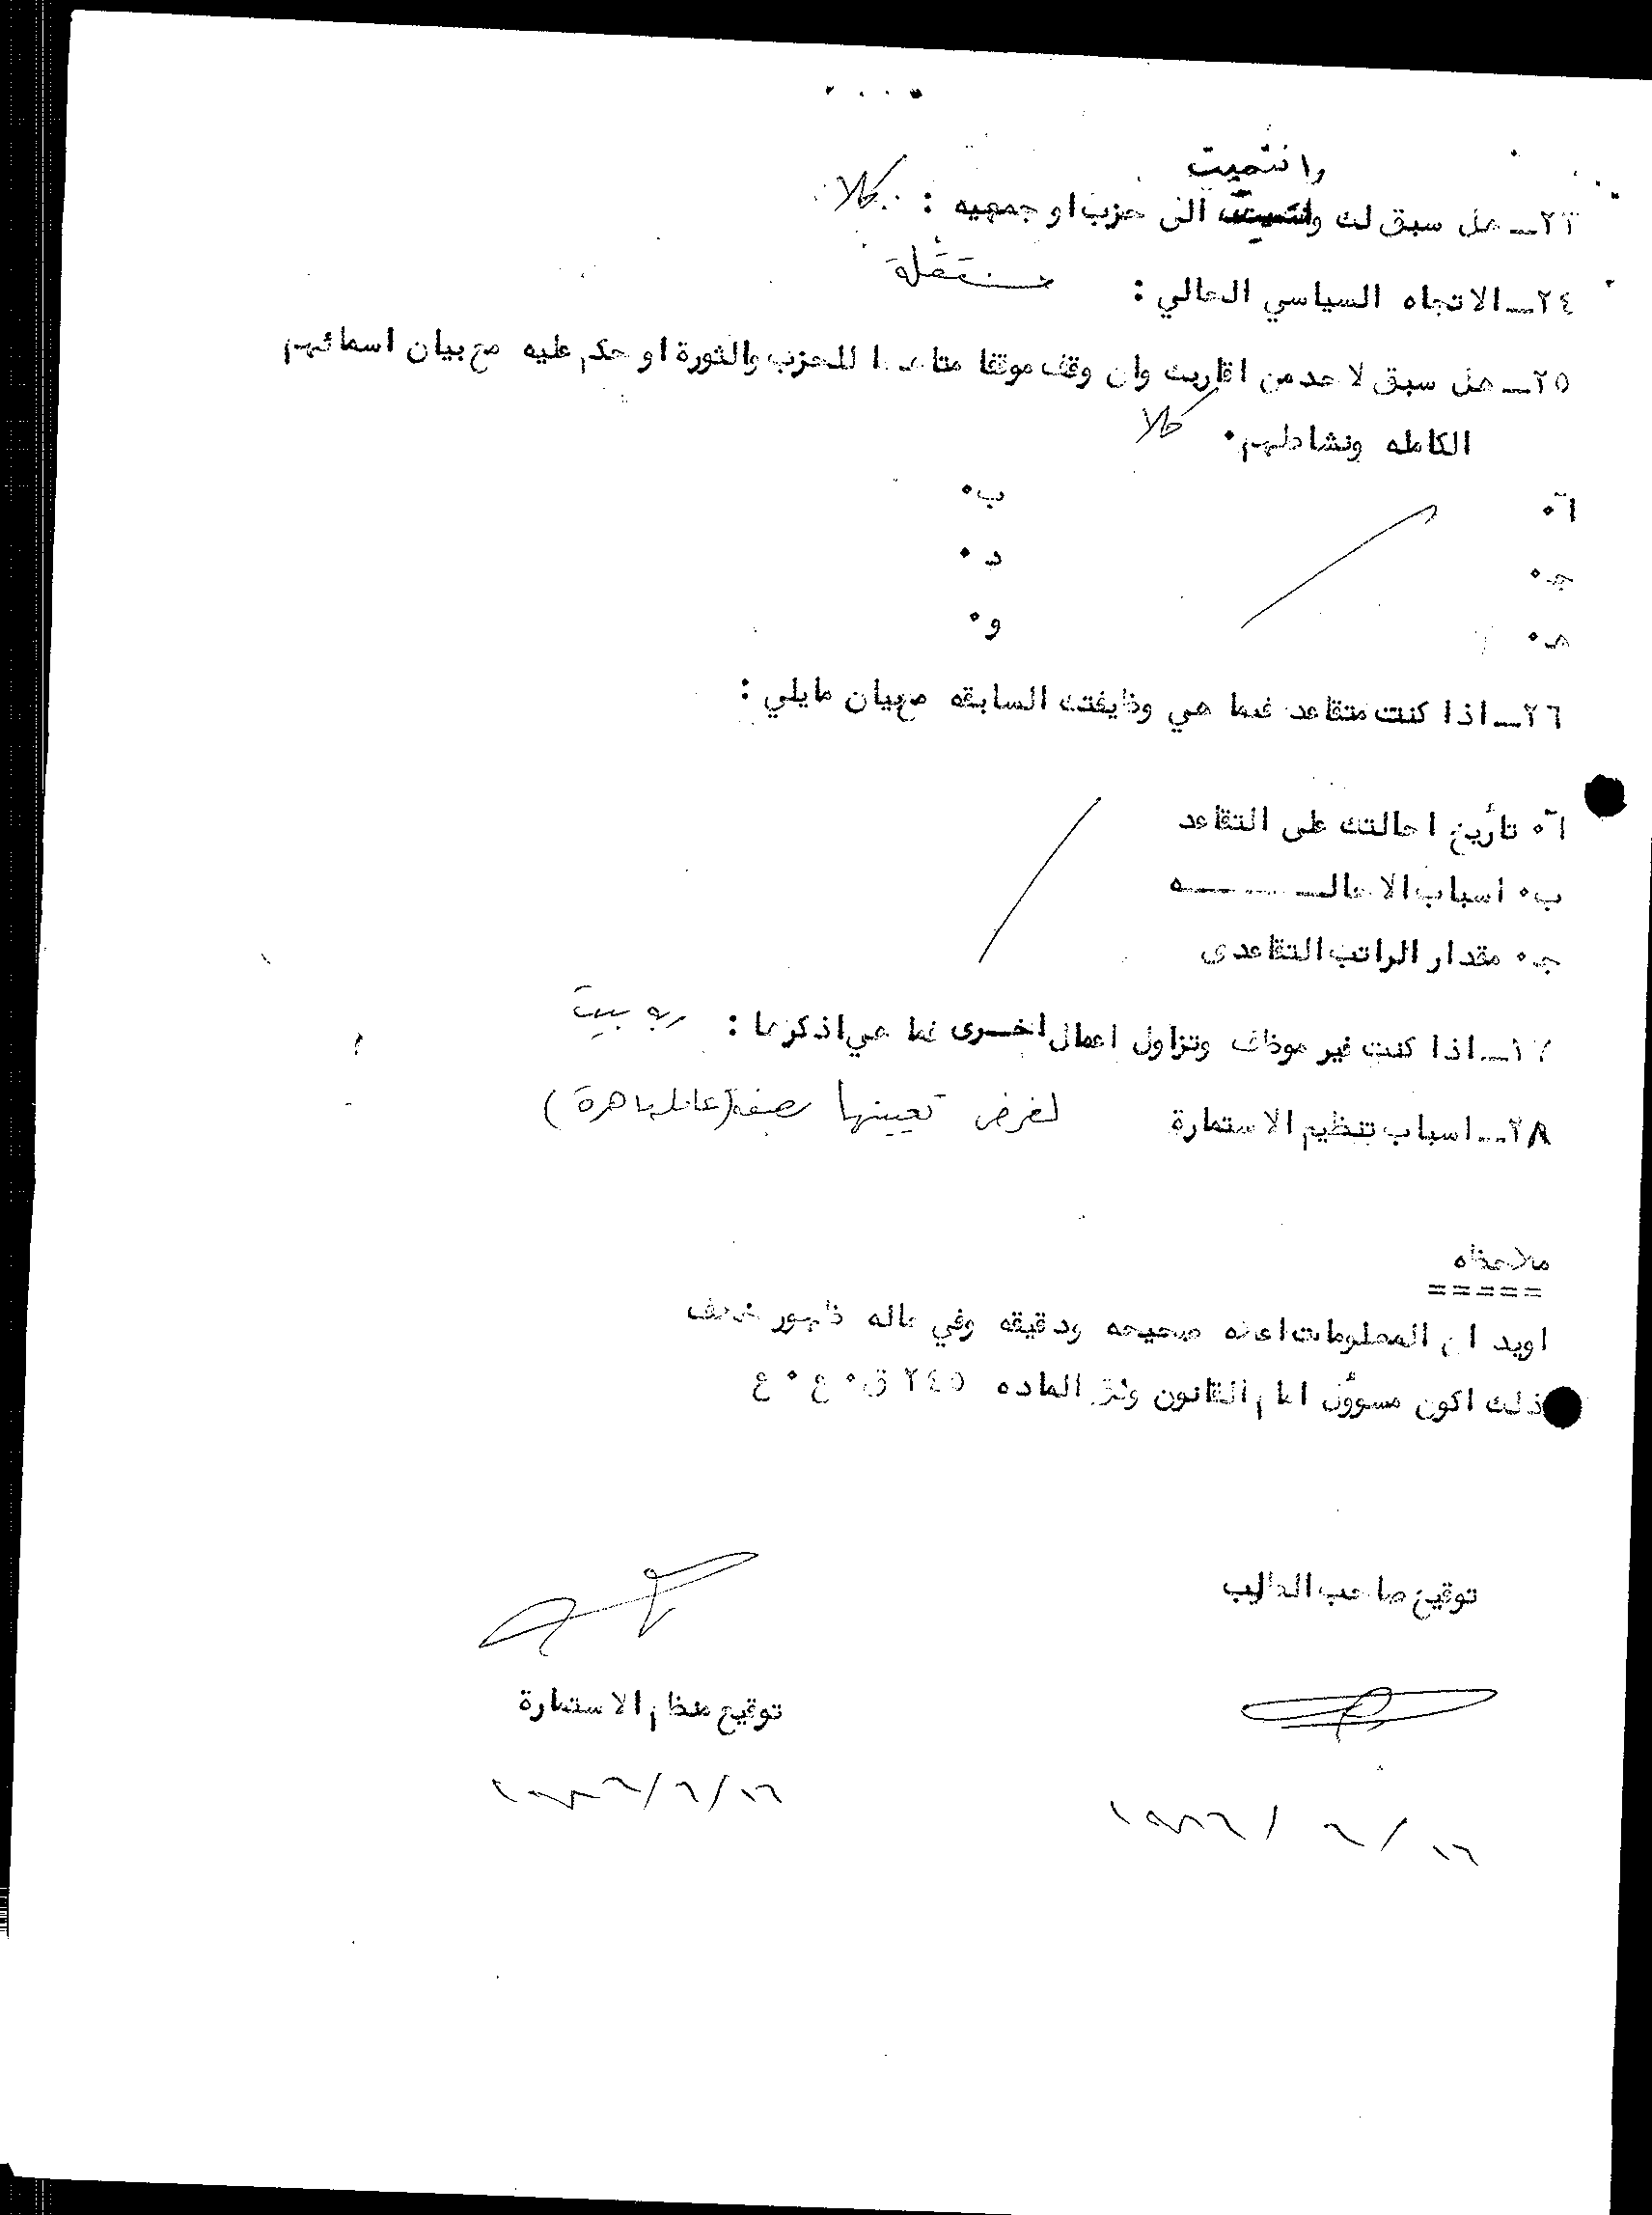 وانتميت
٢٣ـ هل سبق لك وانتميت الى حزب او جمعيه : كلا
٢٤ـ الاتجاه السياسي الحالي : مستقلة
٢٥ـ هل سبق لاحد من اقاربك وان وقف موقفا للحزب والثورة او حكم عليه مع بيان اسمائهم
الكامله ونشاطهم٠ كلا
آ٠ ب٠
جـ٠ د٠
هـ٠ و٠
٢٦ـ اذا كنت متقاعد فما هي وظيفتك السابقه مع بيان مايلي :
آ٠ تأريخ احالتك على التقاعد
ب٠ اسباب الاحالـــــه
جـ٠ مقدار الراتب التقاعدى
٢٧ـ اذا كنت غير موظف وتزاول اعمال اخـرى فما هي اذكرها : ربه بيت
٢٨ـ اسباب تنظيم الاستمارة لغرض تعيينها بصفة (عامله ماهرة)
ملاحظه
=====
اويد ان المعلومات اعلاه صحيحه ودقيقه وفي حاله ظهور خلاف
ذلك اكون مسوؤل امام القانون وفق الماده ٢٤٥ ق٠ع٠ع
توقيع صاحب الطلب
توقيع منظم الاستمارة
١٩٨٦/٦/١٦
١٩٨٦/٦/١٦